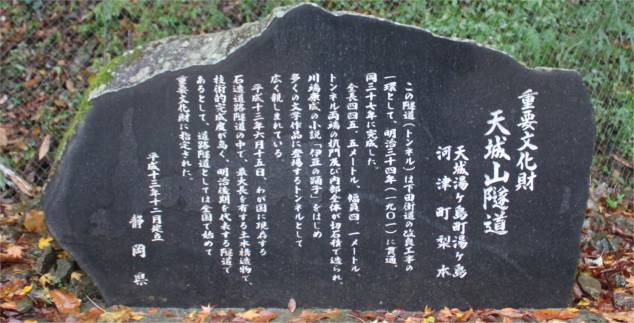 重要文化財
天城山隧道
天城湯ケ島町湯ケ島
河津町梨本
この隧道(トンネル)は下田街道の改良工事の
一環として、明治三十四年(一九〇一)に貫通、
同三十七年に完成した。
全長四四五.五メートル、幅員四.一メートル、
トンネル両端の坑門及び内部全体が切石積で造られ、
川端康成の小説「伊豆の踊子」をはじめ
多くの文学作品に登場するトンネルとして
広く親しまれている。
平成十三年六月十五日、わが国に現存する
石造道路隧道の中で、最大長を有する土木構造物で、
技術的完成度が高く、明治後期を代表する隧道で
あるとして、道路隧道としては全国で始めて
重要文化財に指定された。
平成十三年十二月建立
静岡県